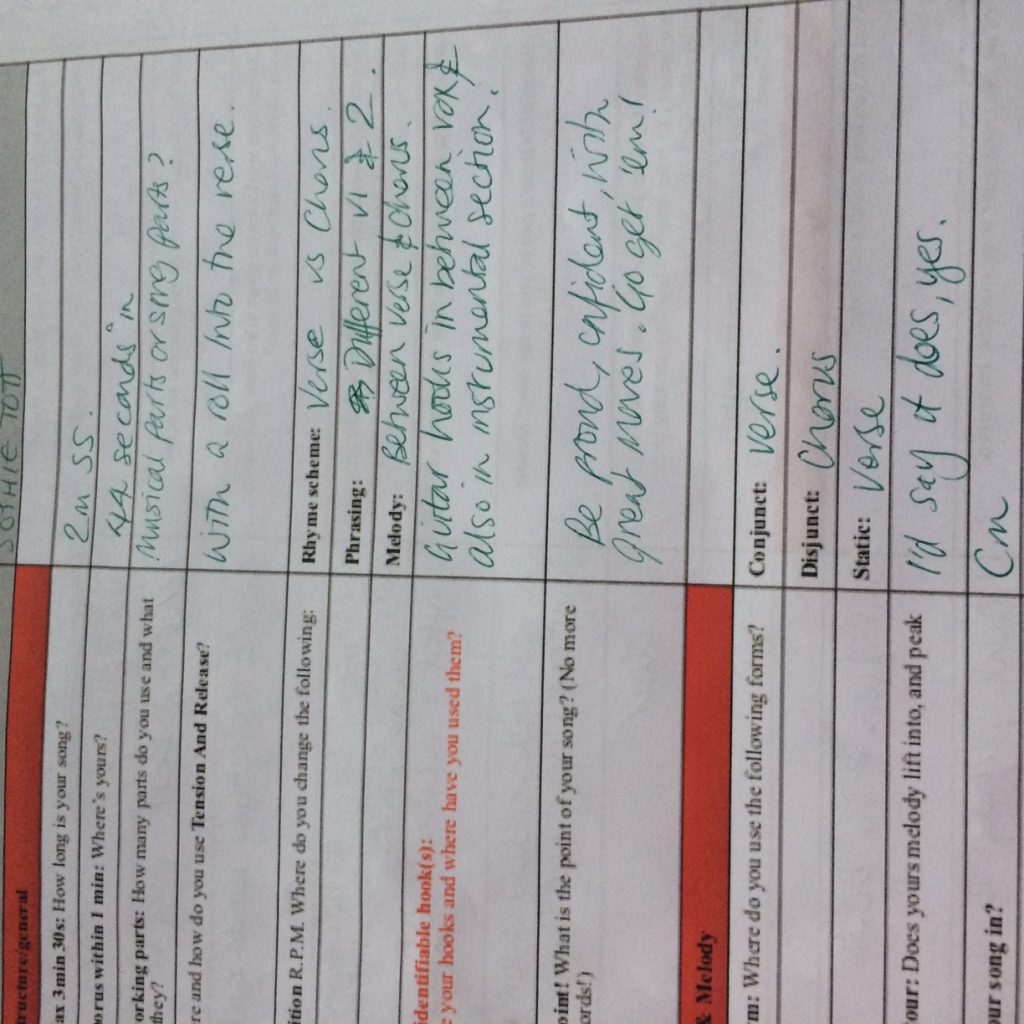 SOPHIE TOTT
ructure/general
ax 3 min 30s: How long is your song?
2m 55.
orus within 1 min: Where's yours?
44 seconds in
orking parts: How many parts do you use and what
they?
Musical parts or song parts?
re and how do you use Tension And Release?
With a roll into the verse.
ition R.P.M. Where do you change the following:
Rhyme scheme: Verse vs Chorus.
Phrasing: Different V1 & 2.
Melody: Between verse & chorus.
identifiable hook(s):
e your hooks and where have you used them?
Guitar hooks in between vox &
also in instrumental section.
oint! What is the point of your song? (No more
ords!)
Be proud, confident, with
great moves. Go get 'em!
& Melody
m: Where do you use the following forms?
Conjunct: verse.
Disjunct: Chorus
Static: Verse
our: Does yours melody lift into, and peak
I'd say it does, yes.
ur song in?
Cm